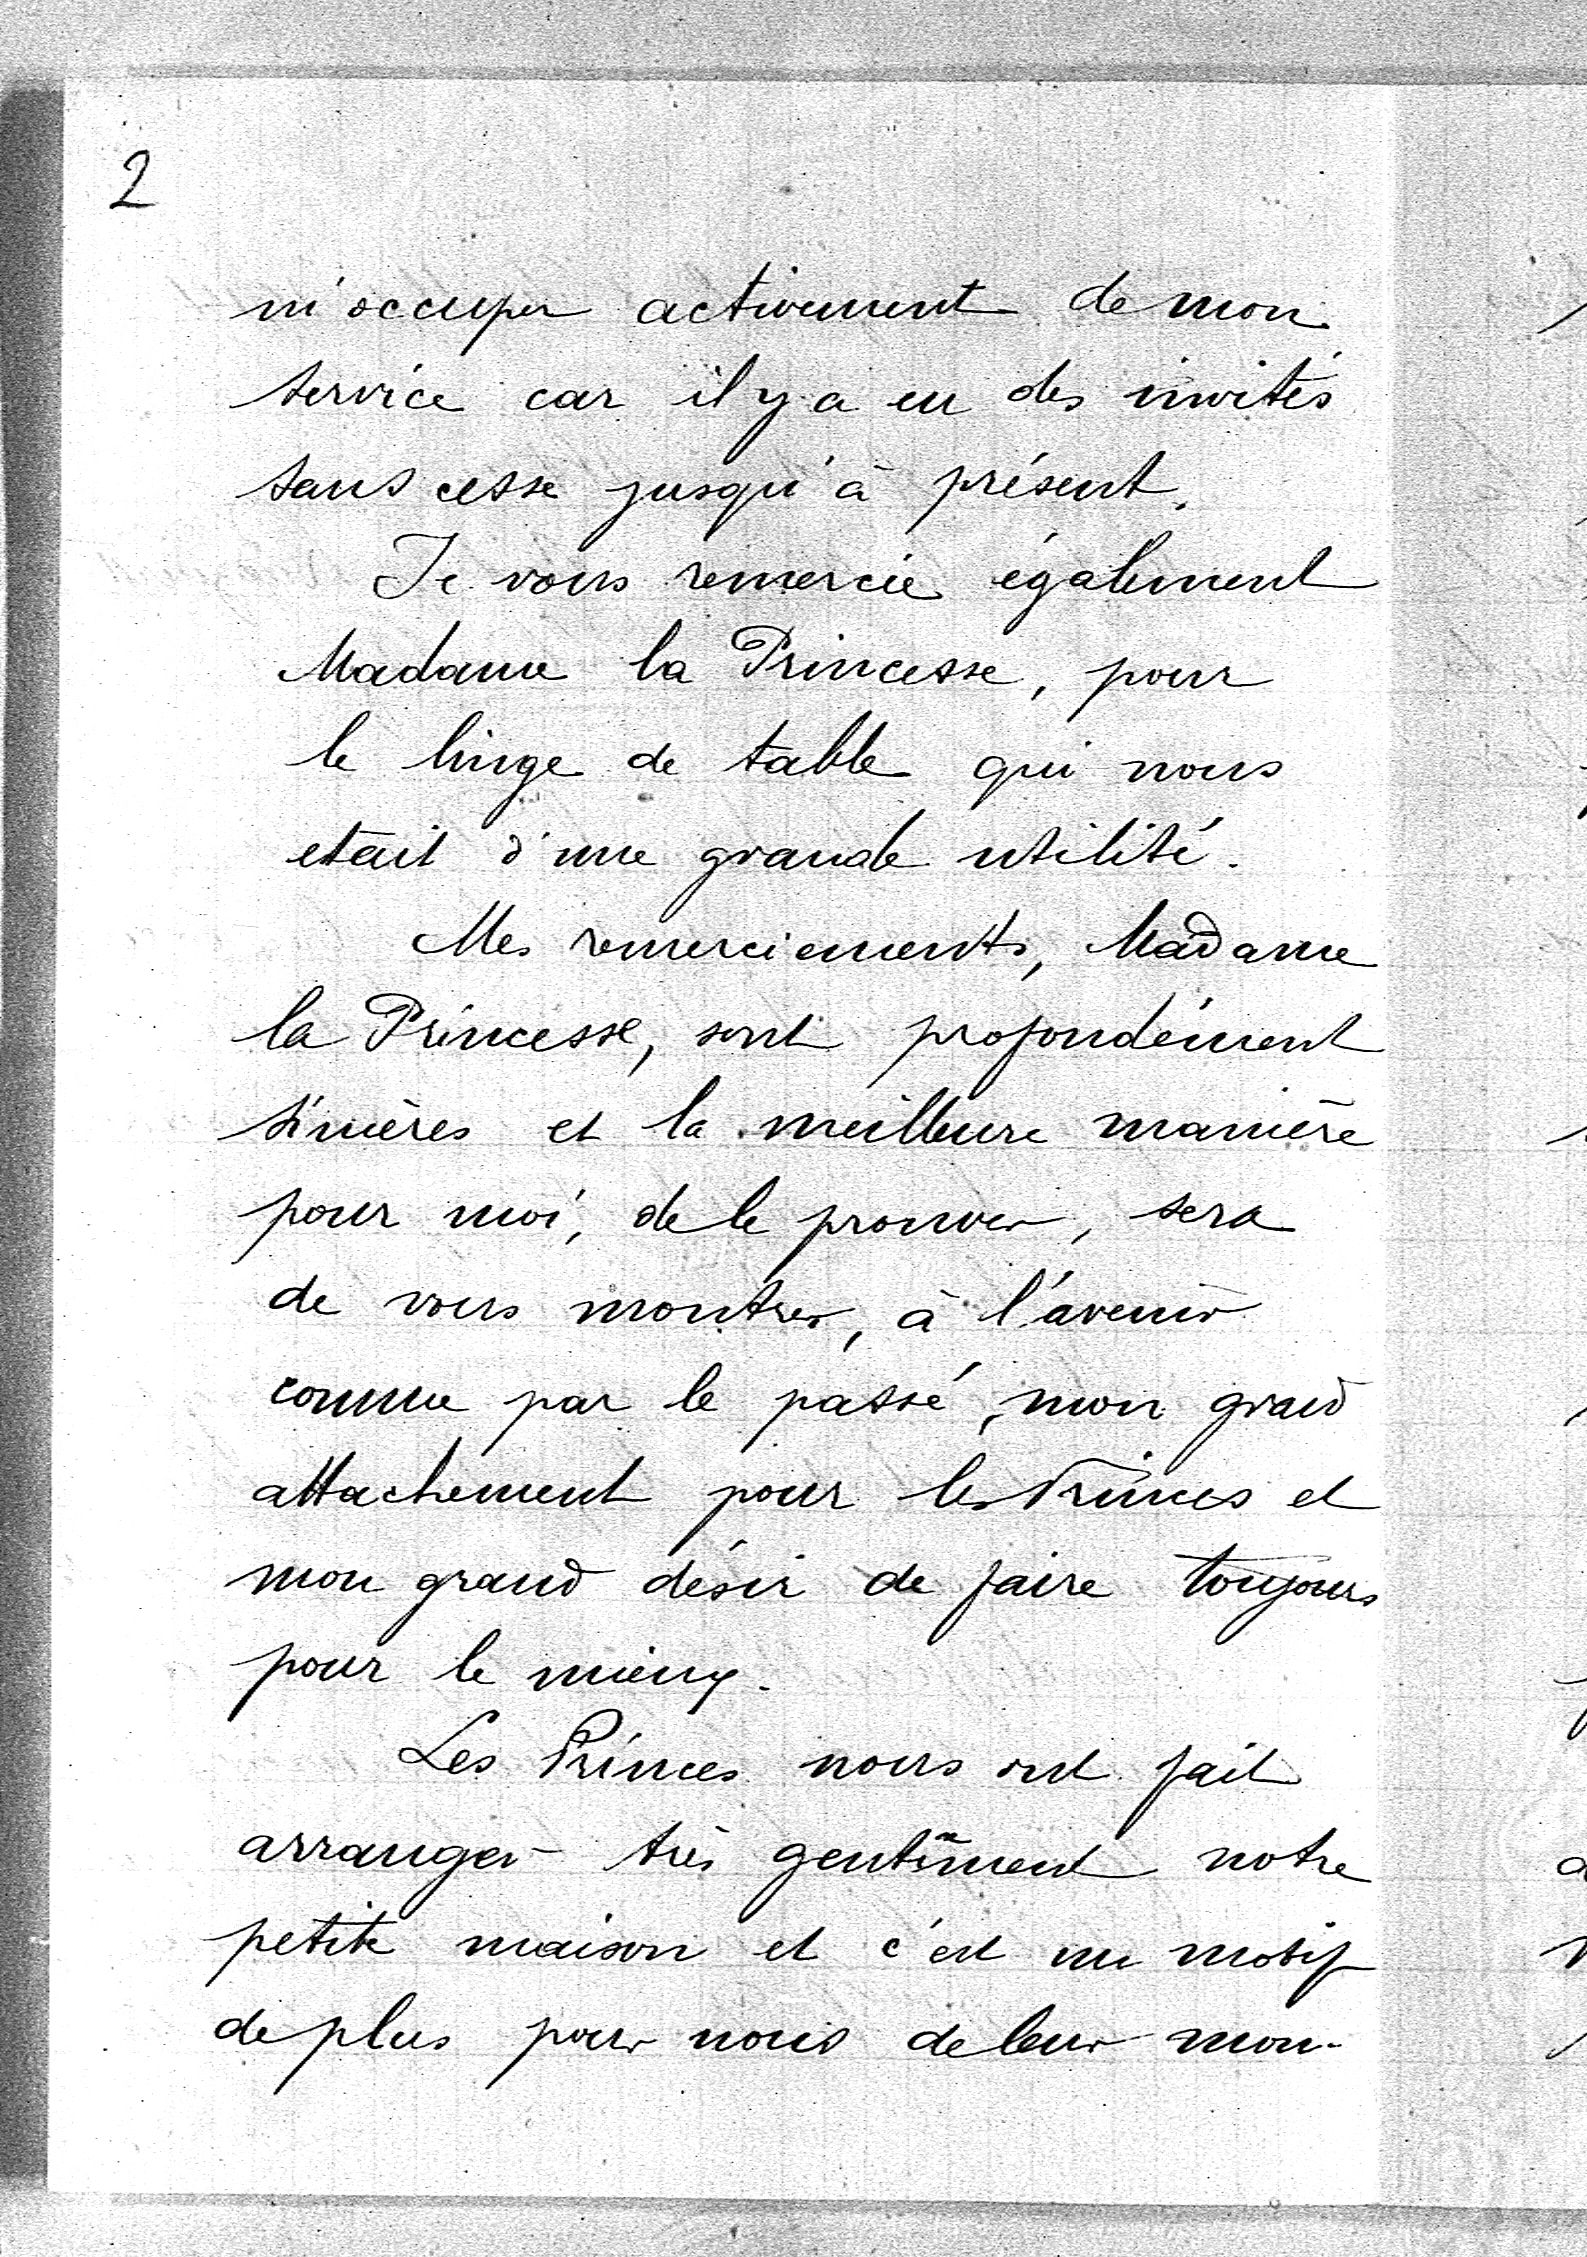 2
m'occuper activement de mon
service car il y a eu des invités
sans cesse jusqu'à présent.
Je vous remercie également
Madame la Princesse, pour
le linge de table qui nous
etait d'une grande utilité.
Mes remerciements, Madame
la Princesse, sont profondément
sincères et la meilleure manière
pour moi, de le prouver, sera
de vous montrer, à l'avenir
comme par le passé, mon grand
attachement pour les Princes et
mon grand désir de faire toujours
pour le mieux.
Les Princes nous ont fait
arranger très gentiment notre
petite maison et c'est un motif
de plus pour nous de leur mon-